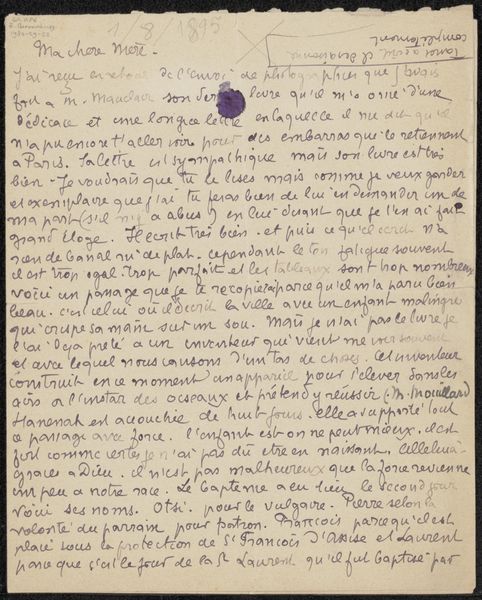 1/8/1895
Ma chere Mere -
J'ai reçu en retour de l'envoi de photographies que j'avais
fait a M. Mauclair son dernier livre qu'il m'a orné d'une
dédicace et une longue lettre en laquelle il me dit qu'il
n'a pu encore t'aller voir pour des embarras qui le retiennent
a Paris. Sa lettre est sympathique mais son livre est très
bien. Je voudrais que tu le lises mais comme je veux garder
l'exemplaire que j'ai tu feras bien de lui en demander un de
ma part (s'il n'y a abus) en lui disant que je t'en ai fait
grand Eloge. Il ecrit très bien. et puis ce qu'il ecrit n'a
rien de banal ni de plat. cependant le ton fatigue souvent
il est trop egal. trop parfait et les tableaux sont trop nombreux
voici un passage que je te recopie parce qu'il m'a paru bien
beau. c'est celui où il décrit la ville avec un enfant malingre
qui crispe sa main sur un sou. Mais je n'ai pas le livre je
l'ai deja prété a un inventeur qui vient me voir souvent
et avec lequel nous causons d'un tas de choses. Cet inventeur
construit en ce moment un appareil pour s'elever dans les
airs a l'instar des oiseaux et prétend y réussir (M. Mouillard)
Hanenah est accouchée de huit jours. elle a supporté tout
ce passage avec force. l'enfant est on ne peut mieux. il est
fort comme certes je n'ai pas dû etre en naissant. alleluia
Graces a Dieu. il n'est pas malheureux que la force revienne
un peu a notre race. Le bapteme a eu lieu le second jour
voici ses noms. Otsi. pour le vulgaire. Pierre selon la
volonté du parrain pour patron. François parce qu'il est
placé sous la protection de St François d'Assise et Laurent
parce que c'est le jour de la St Laurent qu'il fut baptisé par